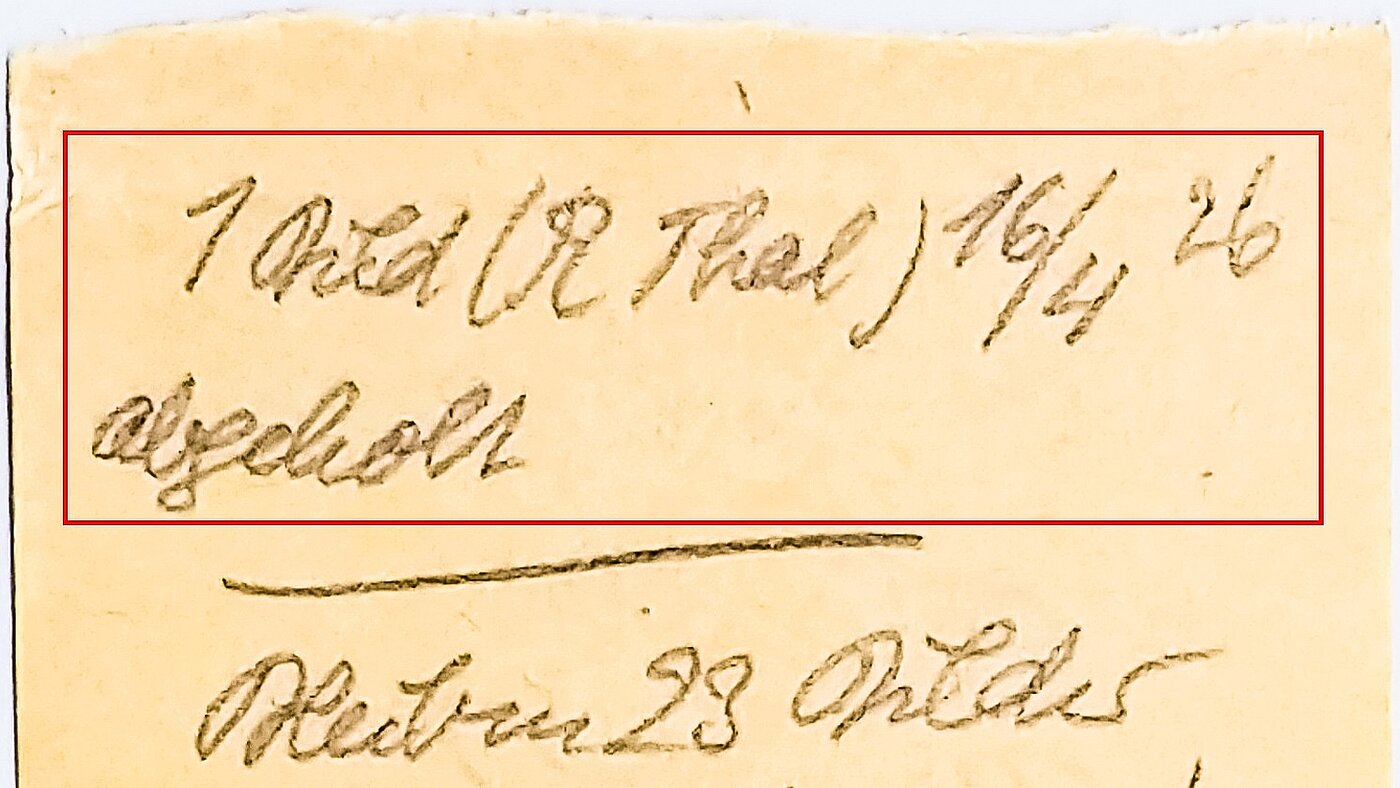 1 Bild (R Thal) 16/4 26
abgeholt
Bleiben 23 Bilder